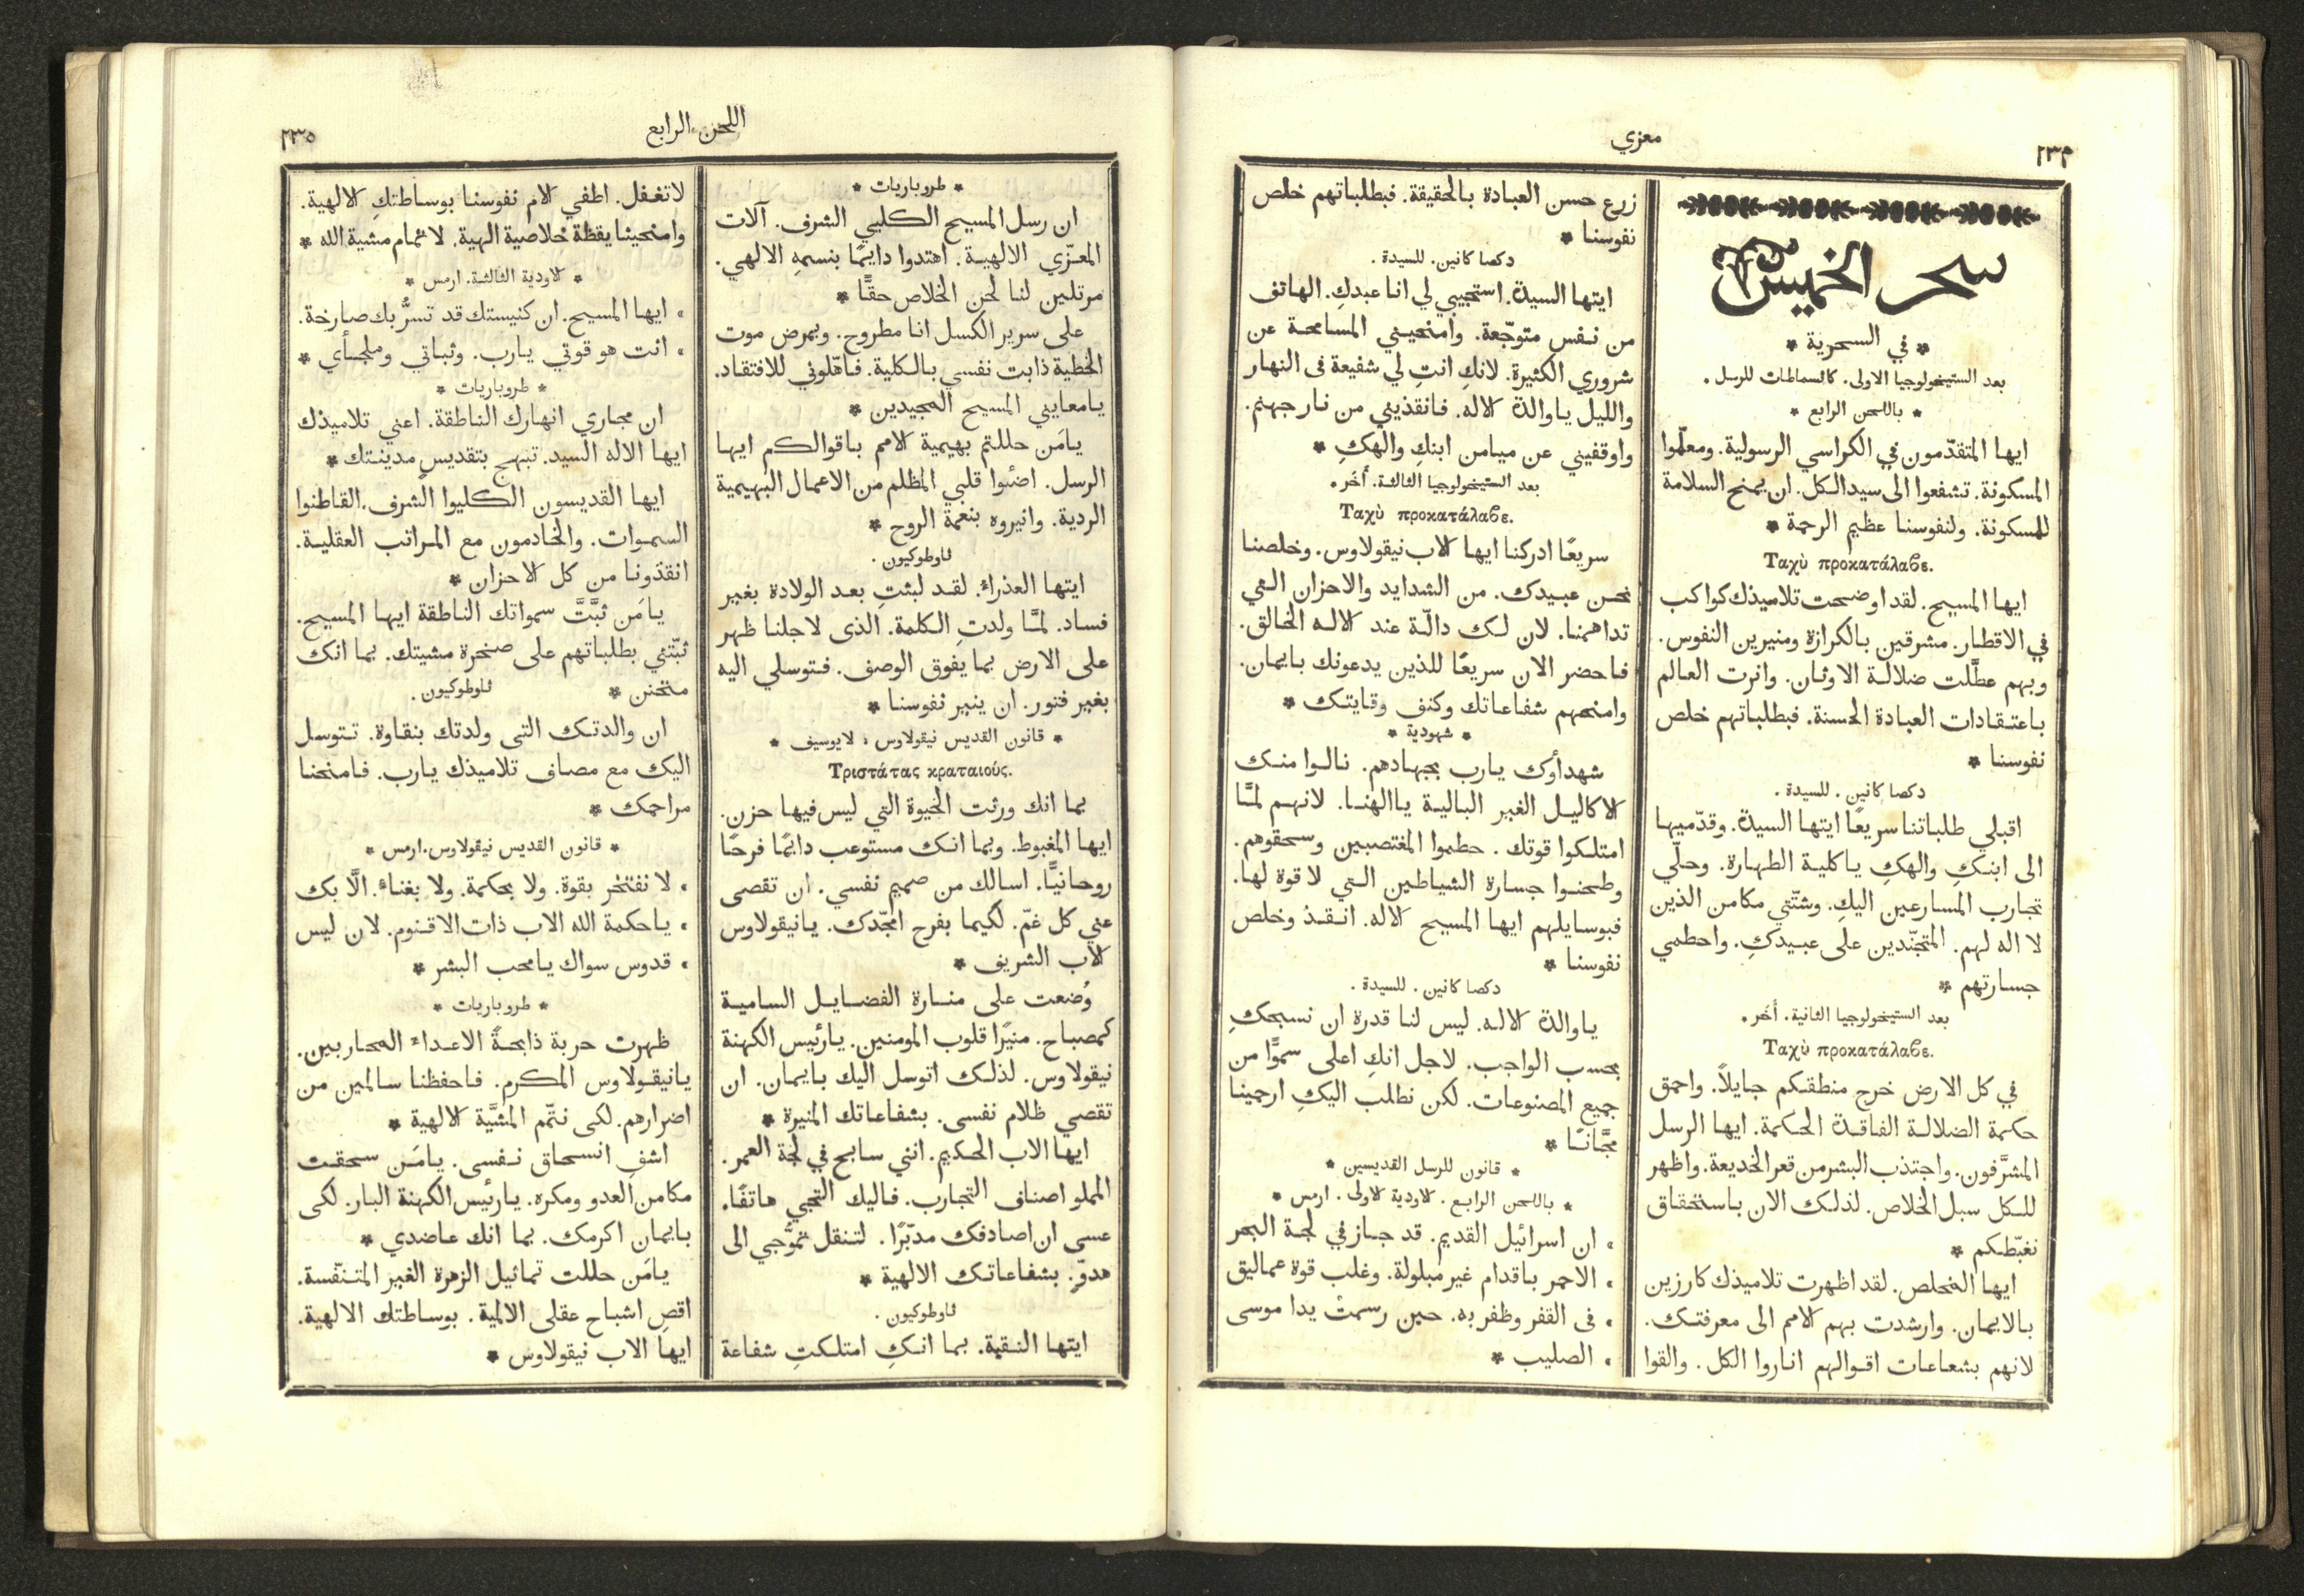 ٢٣٤
معزي
سحر الخميس
* في السحرية *
بعد الستيخولوجيا الاولى. كاثسماطات للرسل.
* باللحن الرابع *
ايها المتقدّمون في الكراسي الرسولية. ومعلّموا
المسكونة. تشفعوا الى سيد الكل. ان يمنح السلامة
للمسكونة. ولنفوسنا عظيم الرحمة *
Ταχὺ προκατάλαβε.
ايها المسيح. لقد اوضحت تلاميذك كواكب
في الاقطار. مشرقين بالكرازة ومنيرين النفوس.
وبهم عطَّلت ضلالة الاوثان. وانرت العالم
باعتقادات العبادة الحسنة. فبطلباتهم خلص
نفوسنا *
دكصا كانين. للسيدة.
اقبلي طلباتنا سريعًا ايتها السيدة. وقدّميها
الى ابنكِ والهكِ ياكلية الطهارة. وحلّي
تجارب المسارعين اليكِ. وشتّتي مكامن الذين
لا اله لهم. المتجنّدين على عبيدكِ. واحطمي
جسارتهم *
بعد الستيخولوجيا الثانية. أُخَر.
Ταχὺ προκατάλαβε.
في كل الارض خرج منطقكم جايلاً. واحمق
حكمة الضلالة الفاقدة الحكمة. ايها الرسل
المشرَّفون. واجتذب البشر من قعر الخديعة. واظهر
للكل سبل الخلاص. لذلك الان باستحقاق
نغبّطكم *
ايها المخلص. لقد اظهرت تلاميذك كارزين
بالايمان. وارشدت بهم الامم الى معرفتك.
لانهم بشعاعات اقوالهم اناروا الكل. والقوا
زرع حسن العبادة بالحقيقة. فبطلباتهم خلص
نفوسنا *
دكصا كانين. للسيدة.
ايتها السيدة. استجيبي لي انا عبدكِ. الهاتف
من نفس متوجّعة. وامنحيني المسامحة عن
شروري الكثيرة. لانكِ انتِ لي شفيعة فى النهار
والليل ياوالدة الاله. فانقذيني من نار جهنم.
واوقفيني عن ميامن ابنكِ والهكِ *
بعد الستيخولوجيا الثالثة. أُخَر.
Ταχὺ προκατάλαβε.
سريعًا ادركنا ايها الاب نيقولاوس. وخلصنا
نحن عبيدك. من الشدايد والاحزان التي
تداهمنا. لان لك دالّة عند الاله الخالق.
فاحضر الان سريعًا للذين يدعونك بايمان.
وامنحهم شفاعاتك وكنف وقايتك *
* شهودية *
شهدأوك يارب بجهادهم. نالوا منك
الاكاليل الغير البالية ياالهنا. لانهم لمَّا
امتلكوا قوتك. حطموا المغتصبين وسحقوهم.
وطحنوا جسارة الشياطين التي لا قوة لها.
فبوسايلهم ايها المسيح الاله. انقذ وخلص
نفوسنا *
دكصا كانين. للسيدة.
ياوالدة الاله. ليس لنا قدرة ان نسبحكِ
بحسب الواجب. لاجل انكِ اعلى سموًّا من
جميع المصنوعات. لكن نطلب اليكِ ارحمينا
مجَّانًا *
* قانون للرسل القديسين *
* باللحن الرابع. الاودية الاولى. ارمس *
، ان اسرائيل القديم. قد جاز في لجة البحر
، الاحمر باقدام غير مبلولة. وغلب قوة عماليق
، فى القفر وظفر به. حين رسمتْ يدا موسى
، الصليب *
اللحن الرابع
٢٣٥
* طروباريات *
ان رسل المسيح الكليي الشرف. آلات
المعزّي الالهية. اهتدوا دايمًا بنسمهِ الالهي.
مرتلين لنا لحن الخلاص حقًّا *
على سرير الكسل انا مطروح. وبمرض موت
الخطية ذابت نفسي بالكلية. فاهّلوني للافتقاد.
يامعايني المسيح المجيدين *
يامَن حللتم بهيمية الامم باقوالكم ايها
الرسل. اضئوا قلبي المظلم من الاعمال البهيمية
الردية. وانيروه بنعمة الروح *
ثاوطوكيون.
ايتها العذراء. لقد لبثتِ بعد الولادة بغير
فساد. لمَّا ولدتِ الكلمة. الذى لاجلنا ظهر
على الارض بما يفوق الوصف. فتوسلي اليه
بغير فتور. ان ينير نفوسنا *
* قانون القديس نيقولاوس، لايوسيف *
Τριστάτας κραταιούς.
بما انك ورثت الحيوة التي ليس فيها حزن.
ايها المغبوط. وبما انك مستوعب دايمًا فرحًا
روحانيًّا. اسالك من صميم نفسي. ان تقصى
عني كل غمّ. لكيما بفرح امجّدك. يانيقولاوس
الاب الشريف *
وُضعت على منارة الفضايل السامية
كمصباح. منيرًا قلوب المومنين. يارئيس الكهنة
نيقولاوس. لذلك اتوسل اليك بايمان. ان
تقصي ظلام نفسى. بشفاعاتك المنيرة *
ايها الاب الحكيم. انني سابح في لجة العمر.
المملو اصناف التجارب. فاليك التجي هاتفًا.
عسى ان اصادفك مدبّرًا. لتنقل تموُّجي الى
هدوٍّ. بشفاعاتك الالهية *
ثاوطوكيون.
ايتها النقية. بما انكِ امتلكتِ شفاعة
لاتغفل. اطفي الام نفوسنا بوساطتكِ الالهية.
وامنحينا يقظة خلاصية الهية. لاتمام مشية الله *
* الاودية الثالثة. ارمس *
، ايها المسيح. ان كنيستك قد تسرُّ بك صارخة.
، انت هو قوتي يارب. وثباتي وملجأي *
* طروباريات *
ان مجاري انهارك الناطقة. اعني تلاميذك
ايها الاله السيد. تبهج بتقديسٍ مدينتك *
ايها القديسون الكليوا الشرف. القاطنوا
السموات. والخادمون مع المراتب العقلية.
انقذونا من كل الاحزان *
يامَن ثبَّتَّ سمواتك الناطقة ايها المسيح.
ثبّتني بطلباتهم على صخرة مشيتك. بما انك
متحنن *
ثاوطوكيون.
ان والدتك التى ولدتك بنقاوة. تتوسل
اليك مع مصاف تلاميذك يارب. فامنحنا
مراحمك *
* قانون القديس نيقولاوس. ارمس *
، لا نفتخر بقوة. ولا بحكمة. ولا بغناء. الَّا بك
، ياحكمة الله الاب ذات الاقنوم. لان ليس
، قدوس سواك يامحب البشر *
* طروباريات *
ظهرت حربة ذابحةً الاعداء المحاربين.
يانيقولاوس المكرم. فاحفظنا سالمين من
اضرارهم. لكى نتمّم المشيَّة الالهية *
اشفِ انسحاق نفسى. يامَن سحقت
مكامن العدو ومكره. يارئيس الكهنة البار. لكى
بايمان اكرمك. بما انك عاضدي *
يامَن حللت تماثيل الزهرة الغير المتنفّسة.
اقصِ اشباح عقلى الالمية. بوساطتك الالهية.
ايها الاب نيقولاوس *